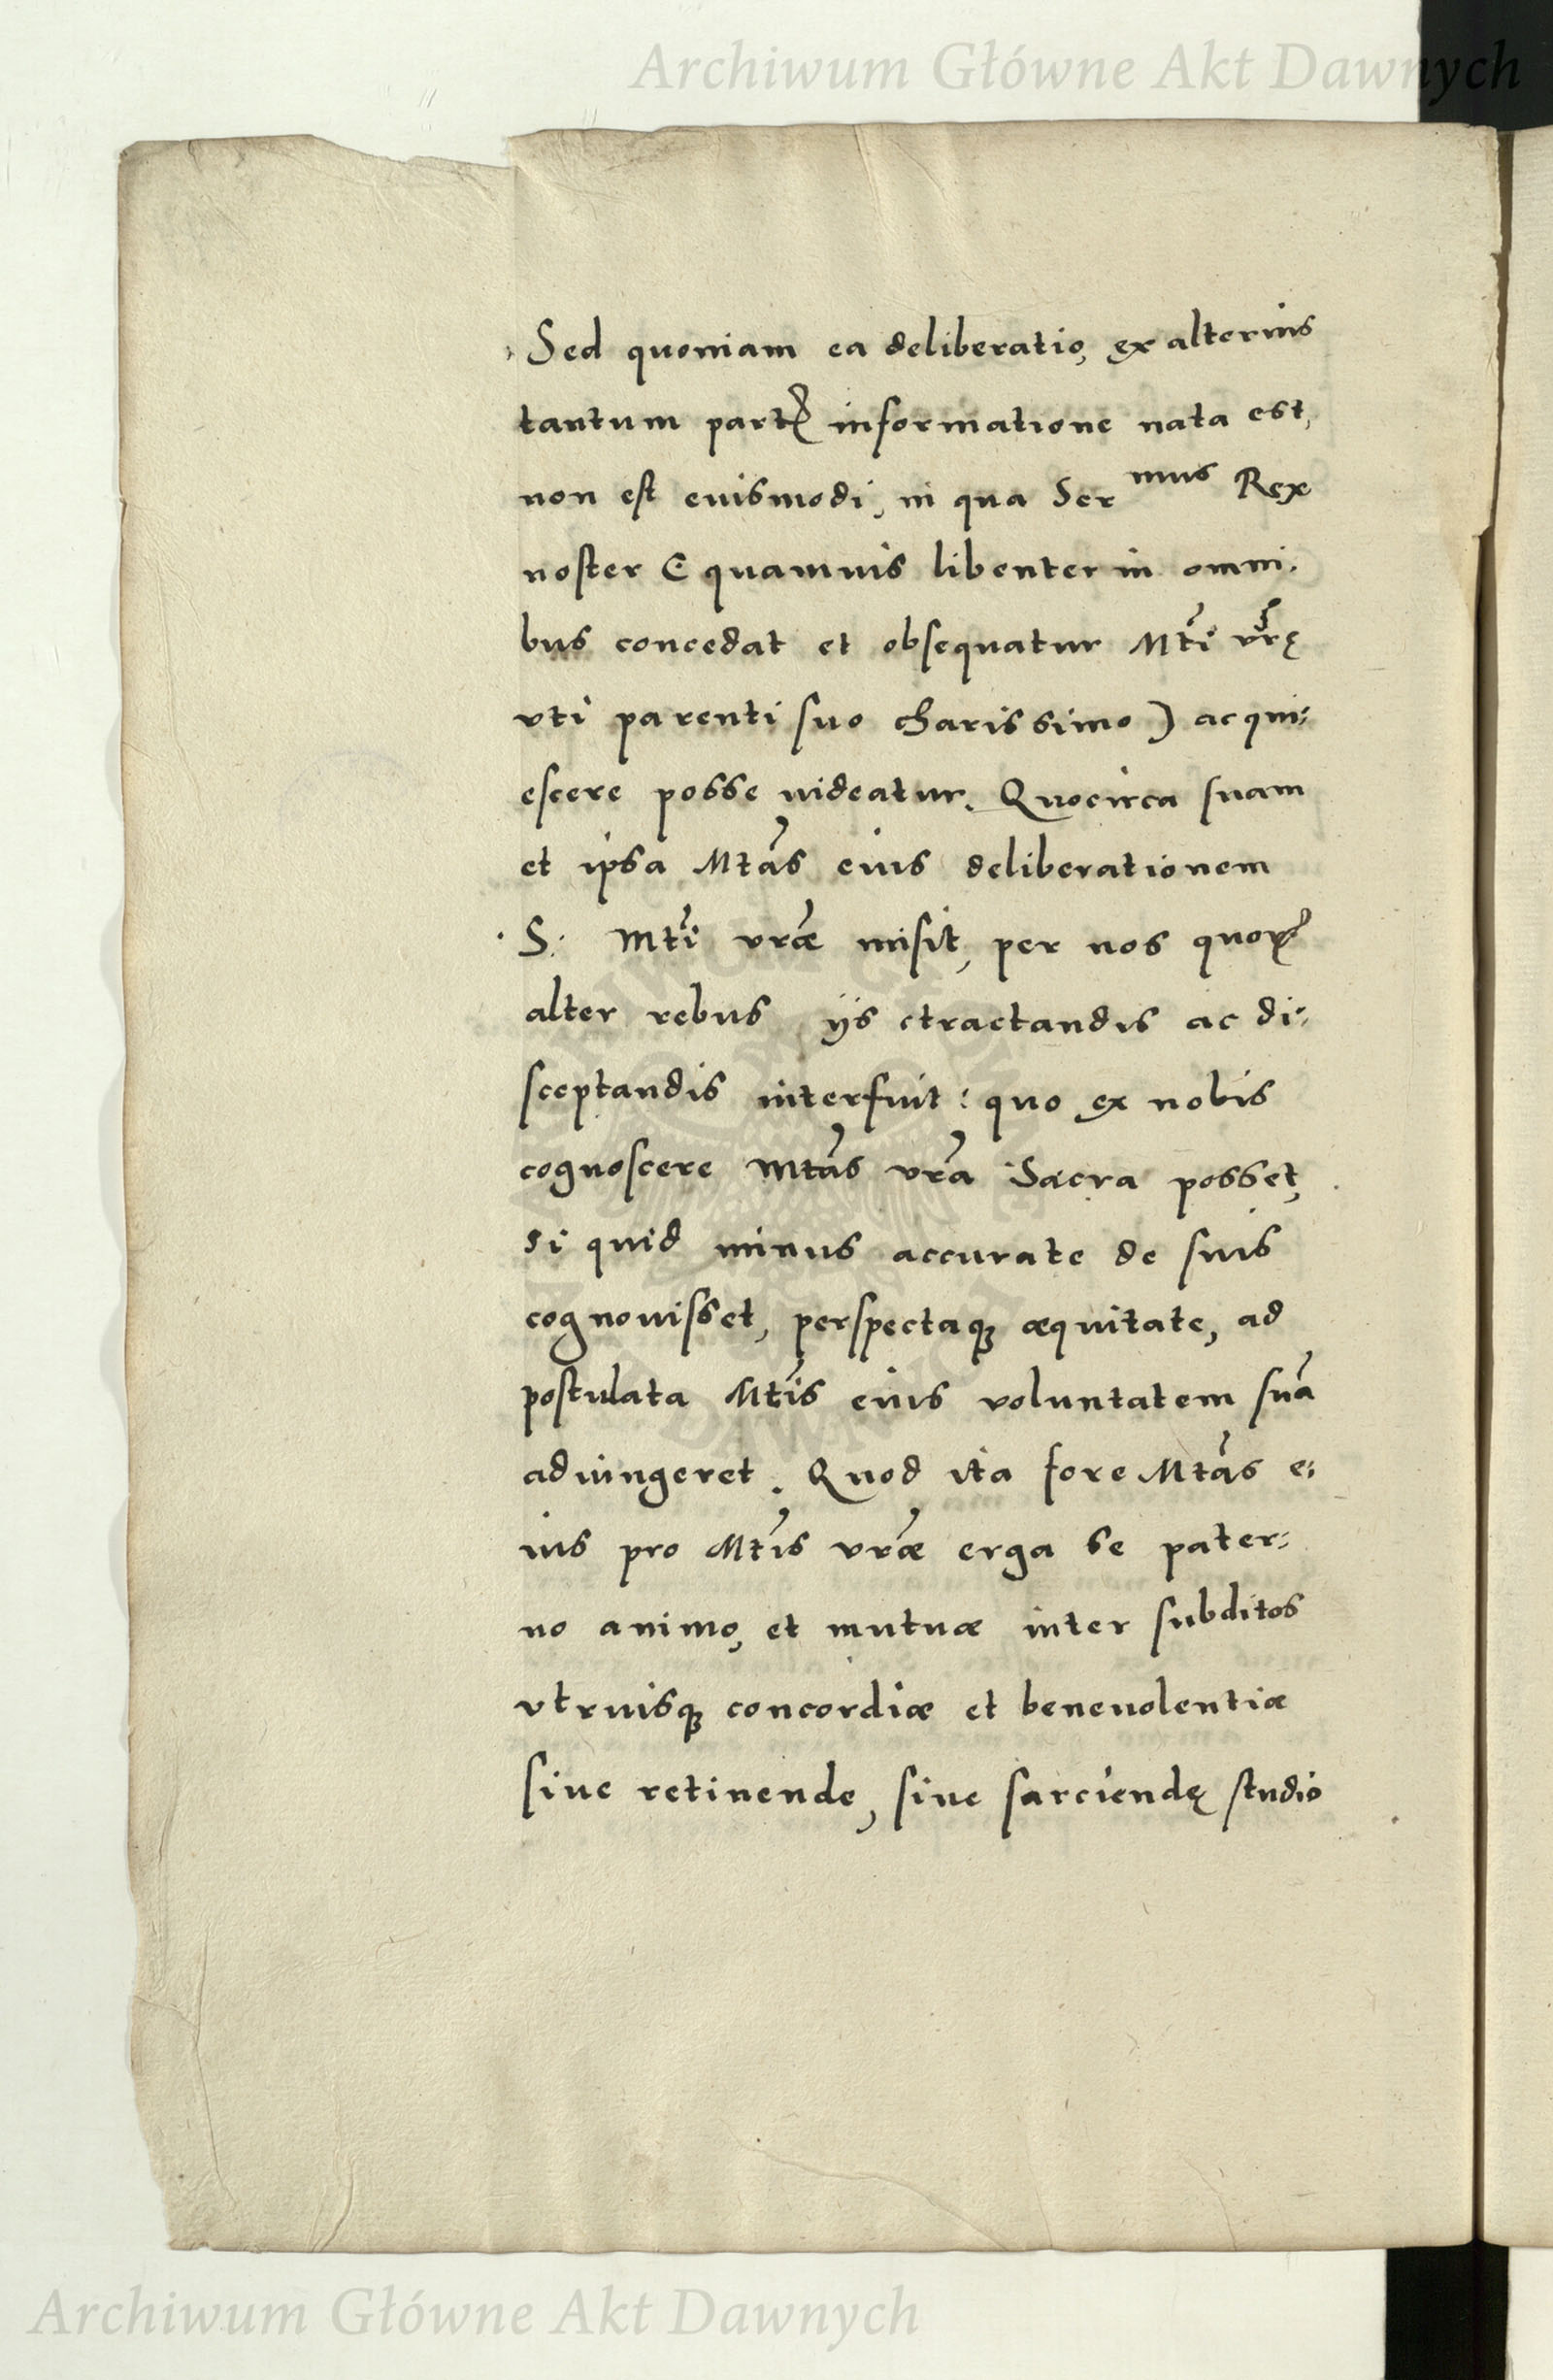 Archiwum Główne Akt Dawnych
Sed quoniam ea deliberatio, ex alterius
tantum part[is] informatione nata est,
non est euismodi, in qua Ser mus Rex
noster ( quamuis libenter in omni-
bus concedat et obsequatur Mti vrę
vti parenti suo charissimo ) acqui-
escere posse uideatur. Quocirca suam
et ipsa Mtas eius deliberationem
S. Mti vrae misit, per nos quoꝝ
alter rebus ijs ctractandis ac di-
sceptandis interfuit: quo ex nobis
cognoscere Mtas vra Sacra posset,
si quid minus accurate de suis
cognouisset, perspectaqꝫ æquitate, ad
postulata Mtis eius voluntatem suā
adiungeret. Quod ita fore Mtas e-
ius pro Mtis vræ erga se pater-
no animo, et mutuæ inter subditos
vtruisqꝫ concordiæ et beneuolentiæ
siue retinende, siue sarciendę studio
Archiwum Główne Akt Dawnych